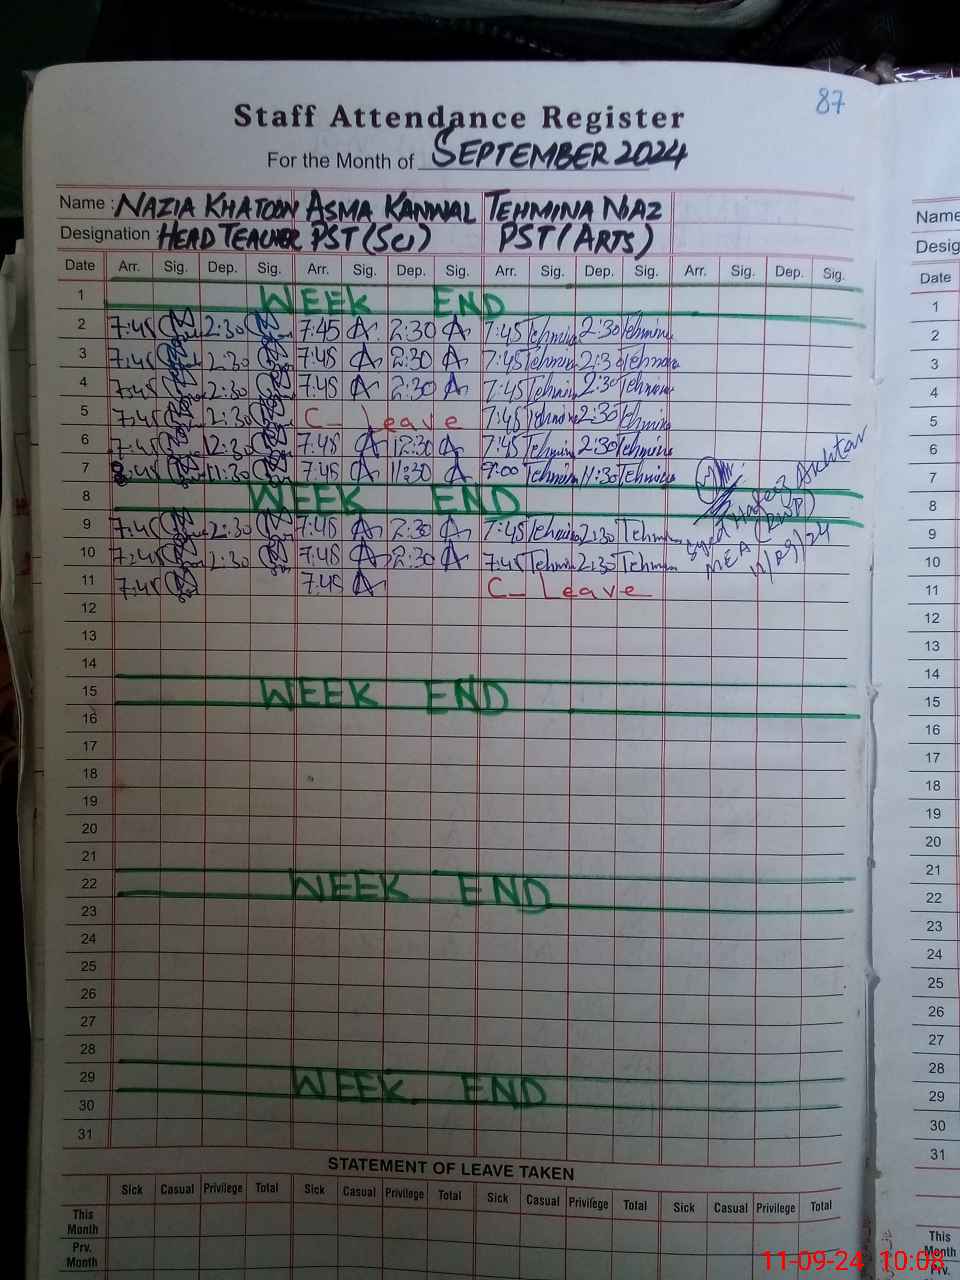 87
Staff Attendance Register
For the Month of SEPTEMBER 2024
Name : NAZIA KHATOON ASMA KANWAL TEHMINA NIAZ
Designation : HEAD TEACHER PST (Sci) PST (ARTS)
Date Arr. Sig. Dep. Sig. Arr. Sig. Dep. Sig. Arr. Sig. Dep. Sig. Arr. Sig. Dep. Sig.
1 WEEK END
2 7:45 2:30 7:45 A 2:30 A 7:45 Tehmina 2:30 Tehmina
3 7:45 2:30 7:45 A 2:30 A 7:45 Tehmina 2:30 Tehmina
4 7:45 2:30 7:45 A 2:30 A 7:45 Tehmina 2:30 Tehmina
5 7:45 2:30 C_ Leave 7:45 Tehmina 2:30 Tehmina
6 7:45 12:30 7:45 A 12:30 A 7:45 Tehmina 2:30 Tehmina
7 8:45 11:30 7:45 A 11:30 A 9:00 Tehmina 11:30 Tehmina
8 WEEK END
9 7:45 2:30 7:45 A 2:30 A 7:45 Tehmina 2:30 Tehmina
10 7:45 2:30 7:45 A 2:30 A 7:45 Tehmina 2:30 Tehmina
11 7:45 7:45 A C_ Leave
Syed Hafeez Akhtar
MEA (RWP)
11/09/24
12
13
14
15 WEEK END
16
17
18
19
20
21
22 WEEK END
23
24
25
26
27
28
29 WEEK END
30
31
STATEMENT OF LEAVE TAKEN
Sick Casual Privilege Total Sick Casual Privilege Total Sick Casual Privilege Total Sick Casual Privilege Total
This Month
Prv. Month
Name
Desig
Date
1
2
3
4
5
6
7
8
9
10
11
12
13
14
15
16
17
18
19
20
21
22
23
24
25
26
27
28
29
30
31
This
Month
Prv.
11-09-24 10:08